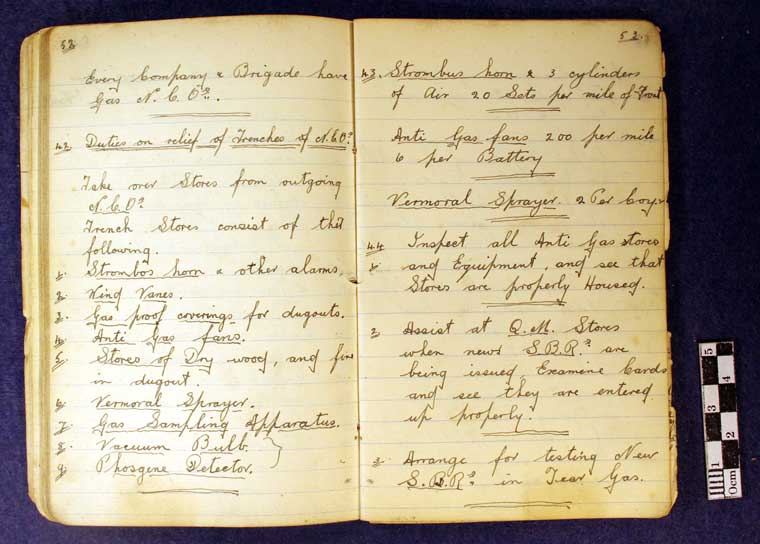 52
Every Company & Brigade have
Gas N.C.Os.
42 Duties on relief of Trenches of N.C.Os
Take over Stores from outgoing
N.C.Os
Trench Stores consist of the
following.
1. Strombos horn & other alarms,
2. Wind Vanes.
3. Gas proof coverings for dugouts.
4. Anti Gas fans.
5. Stores of Dry wood, and fire
in dugout.
6. Vermoral Sprayer.
7. Gas Sampling Apparatus.
8. Vacuum Bulb.
9. Phosgene Detector.
52.
43. Strombus horn & 3 cylinders
of Air 20 Sets per mile of Front
Anti Gas fans 200 per mile
6 per Battery
Vermoral Sprayer. 2 Per Coy.
44 Inspect all Anti Gas stores
1. and Equipment, and see that
Stores are properly Housed.
2 Assist at Q.M. Stores
when news S.B.Rs are
being issued, Examine Cards
and see they are entered
up properly.
3 Arrange for testing New
S.B.Rs in Tear Gas.
0cm 1 2 3 4 5